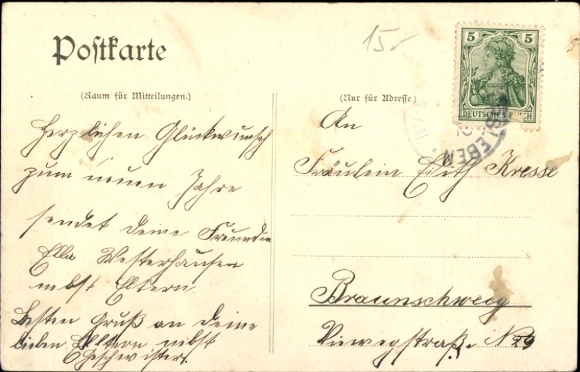 Postkarte
15
5 5
DEUTSCHES REICH
LEBEN
(Raum für Mitteilungen.)
(Nur für Adresse.)
Herzlichen Glückwunsch
zum neuen Jahre
sendet deine Freundin
Ella Westerhausen
nebst Eltern.
Besten Gruß an deine
lieben Eltern nebst
Geschwister.
An
Fräulein Edith Kresse
Braunschweig
Viewegstraße No 29